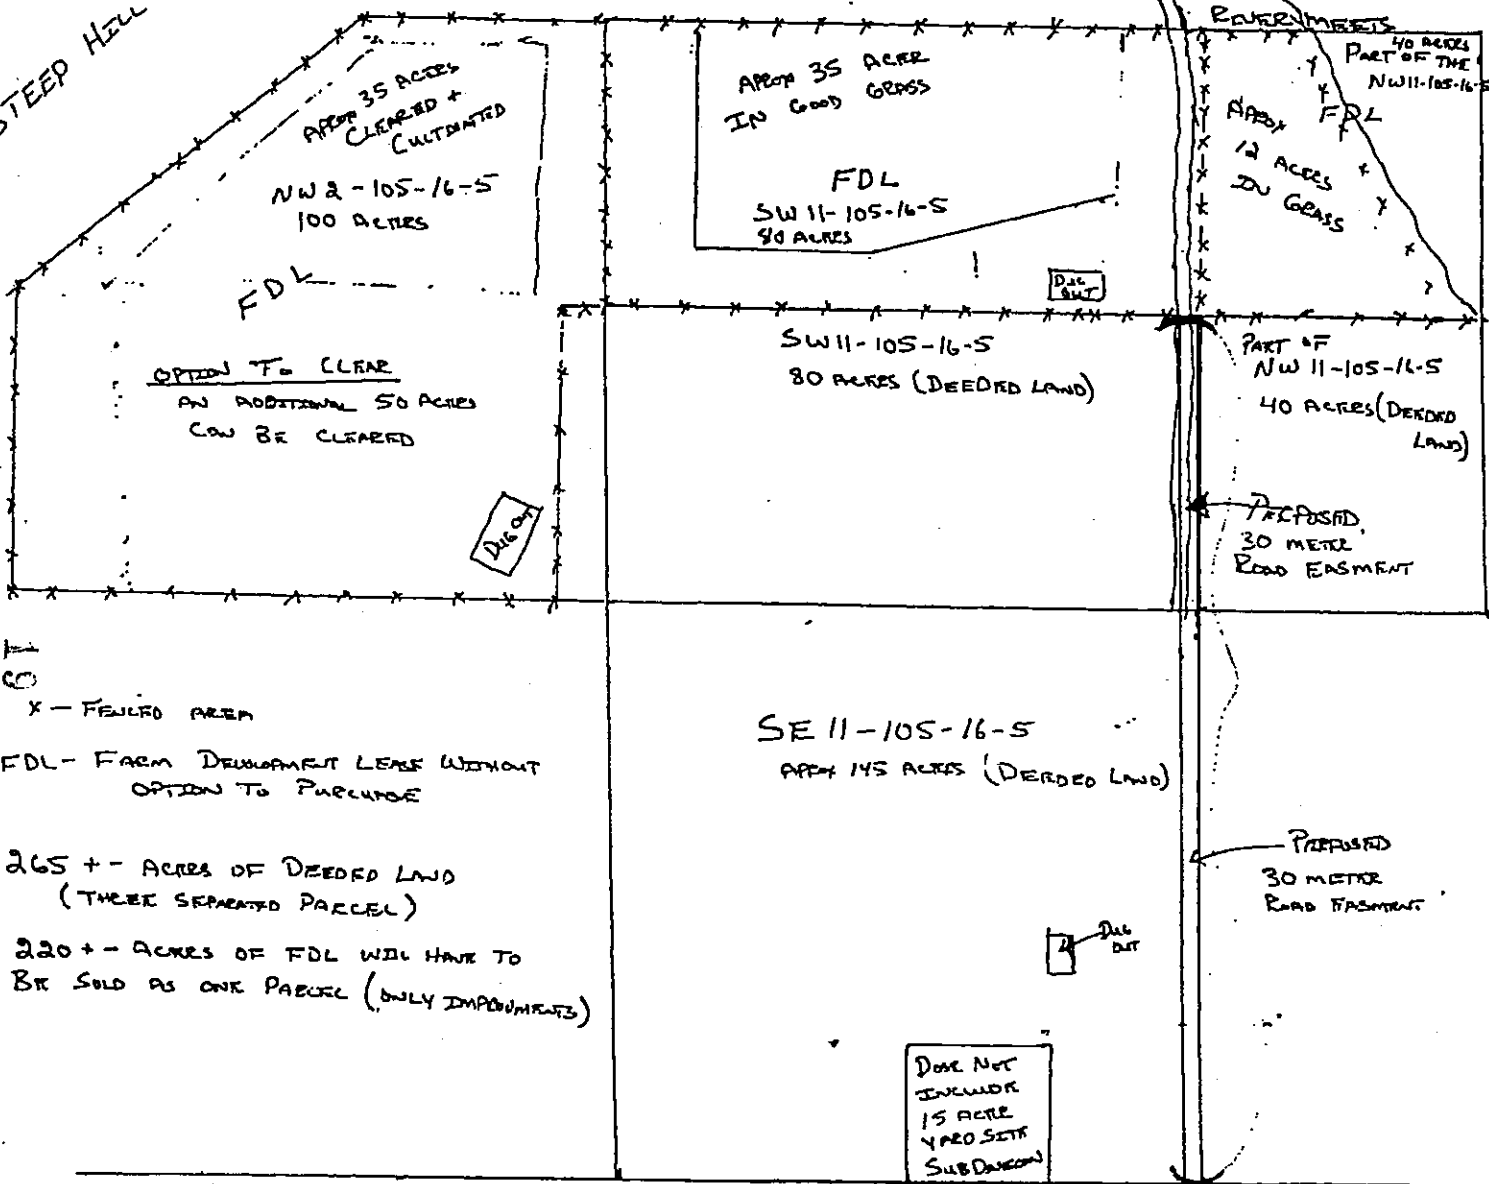 STEEP HILL
APPOX 35 ACRES
CLEARED +
CULTIVATED
NW 2-105-16-5
100 ACRES
FDL
OPTION TO CLEAR
AN ADDITIONAL 50 ACRES
CAN BE CLEARED
DUG OUT
APPOX 35 ACRER
IN GOOD GRASS
FDL
SW 11-105-16-5
80 ACRES
DUG
OUT
RIVER MEETS
40 ACRES
PART OF THE
NW 11-105-16-5
FDL
APPOX
12 ACRES
IN GRASS
SW 11-105-16-5
80 ACRES (DEEDED LAND)
PART OF
NW 11-105-16-5
40 ACRES (DEEDED
LAND)
PROPOSED
30 METER
ROAD EASMENT
X - FENCED AREA
FDL - FARM DEVELOPMENT LEASE WITHOUT
OPTION TO PURCHASE
265 +- ACRES OF DEEDED LAND
(THREE SEPARATED PARCEL)
220 +- ACRES OF FDL WILL HAVE TO
BE SOLD AS ONE PARCEL (ONLY IMPROVMENTS)
SE 11-105-16-5
APPOX 145 ACRES (DEEDED LAND)
PROPOSED
30 METER
ROAD EASMENT
DUG
OUT
DOSE NOT
INCLUDE
15 ACRE
YARD SITE
SUBDIVISION